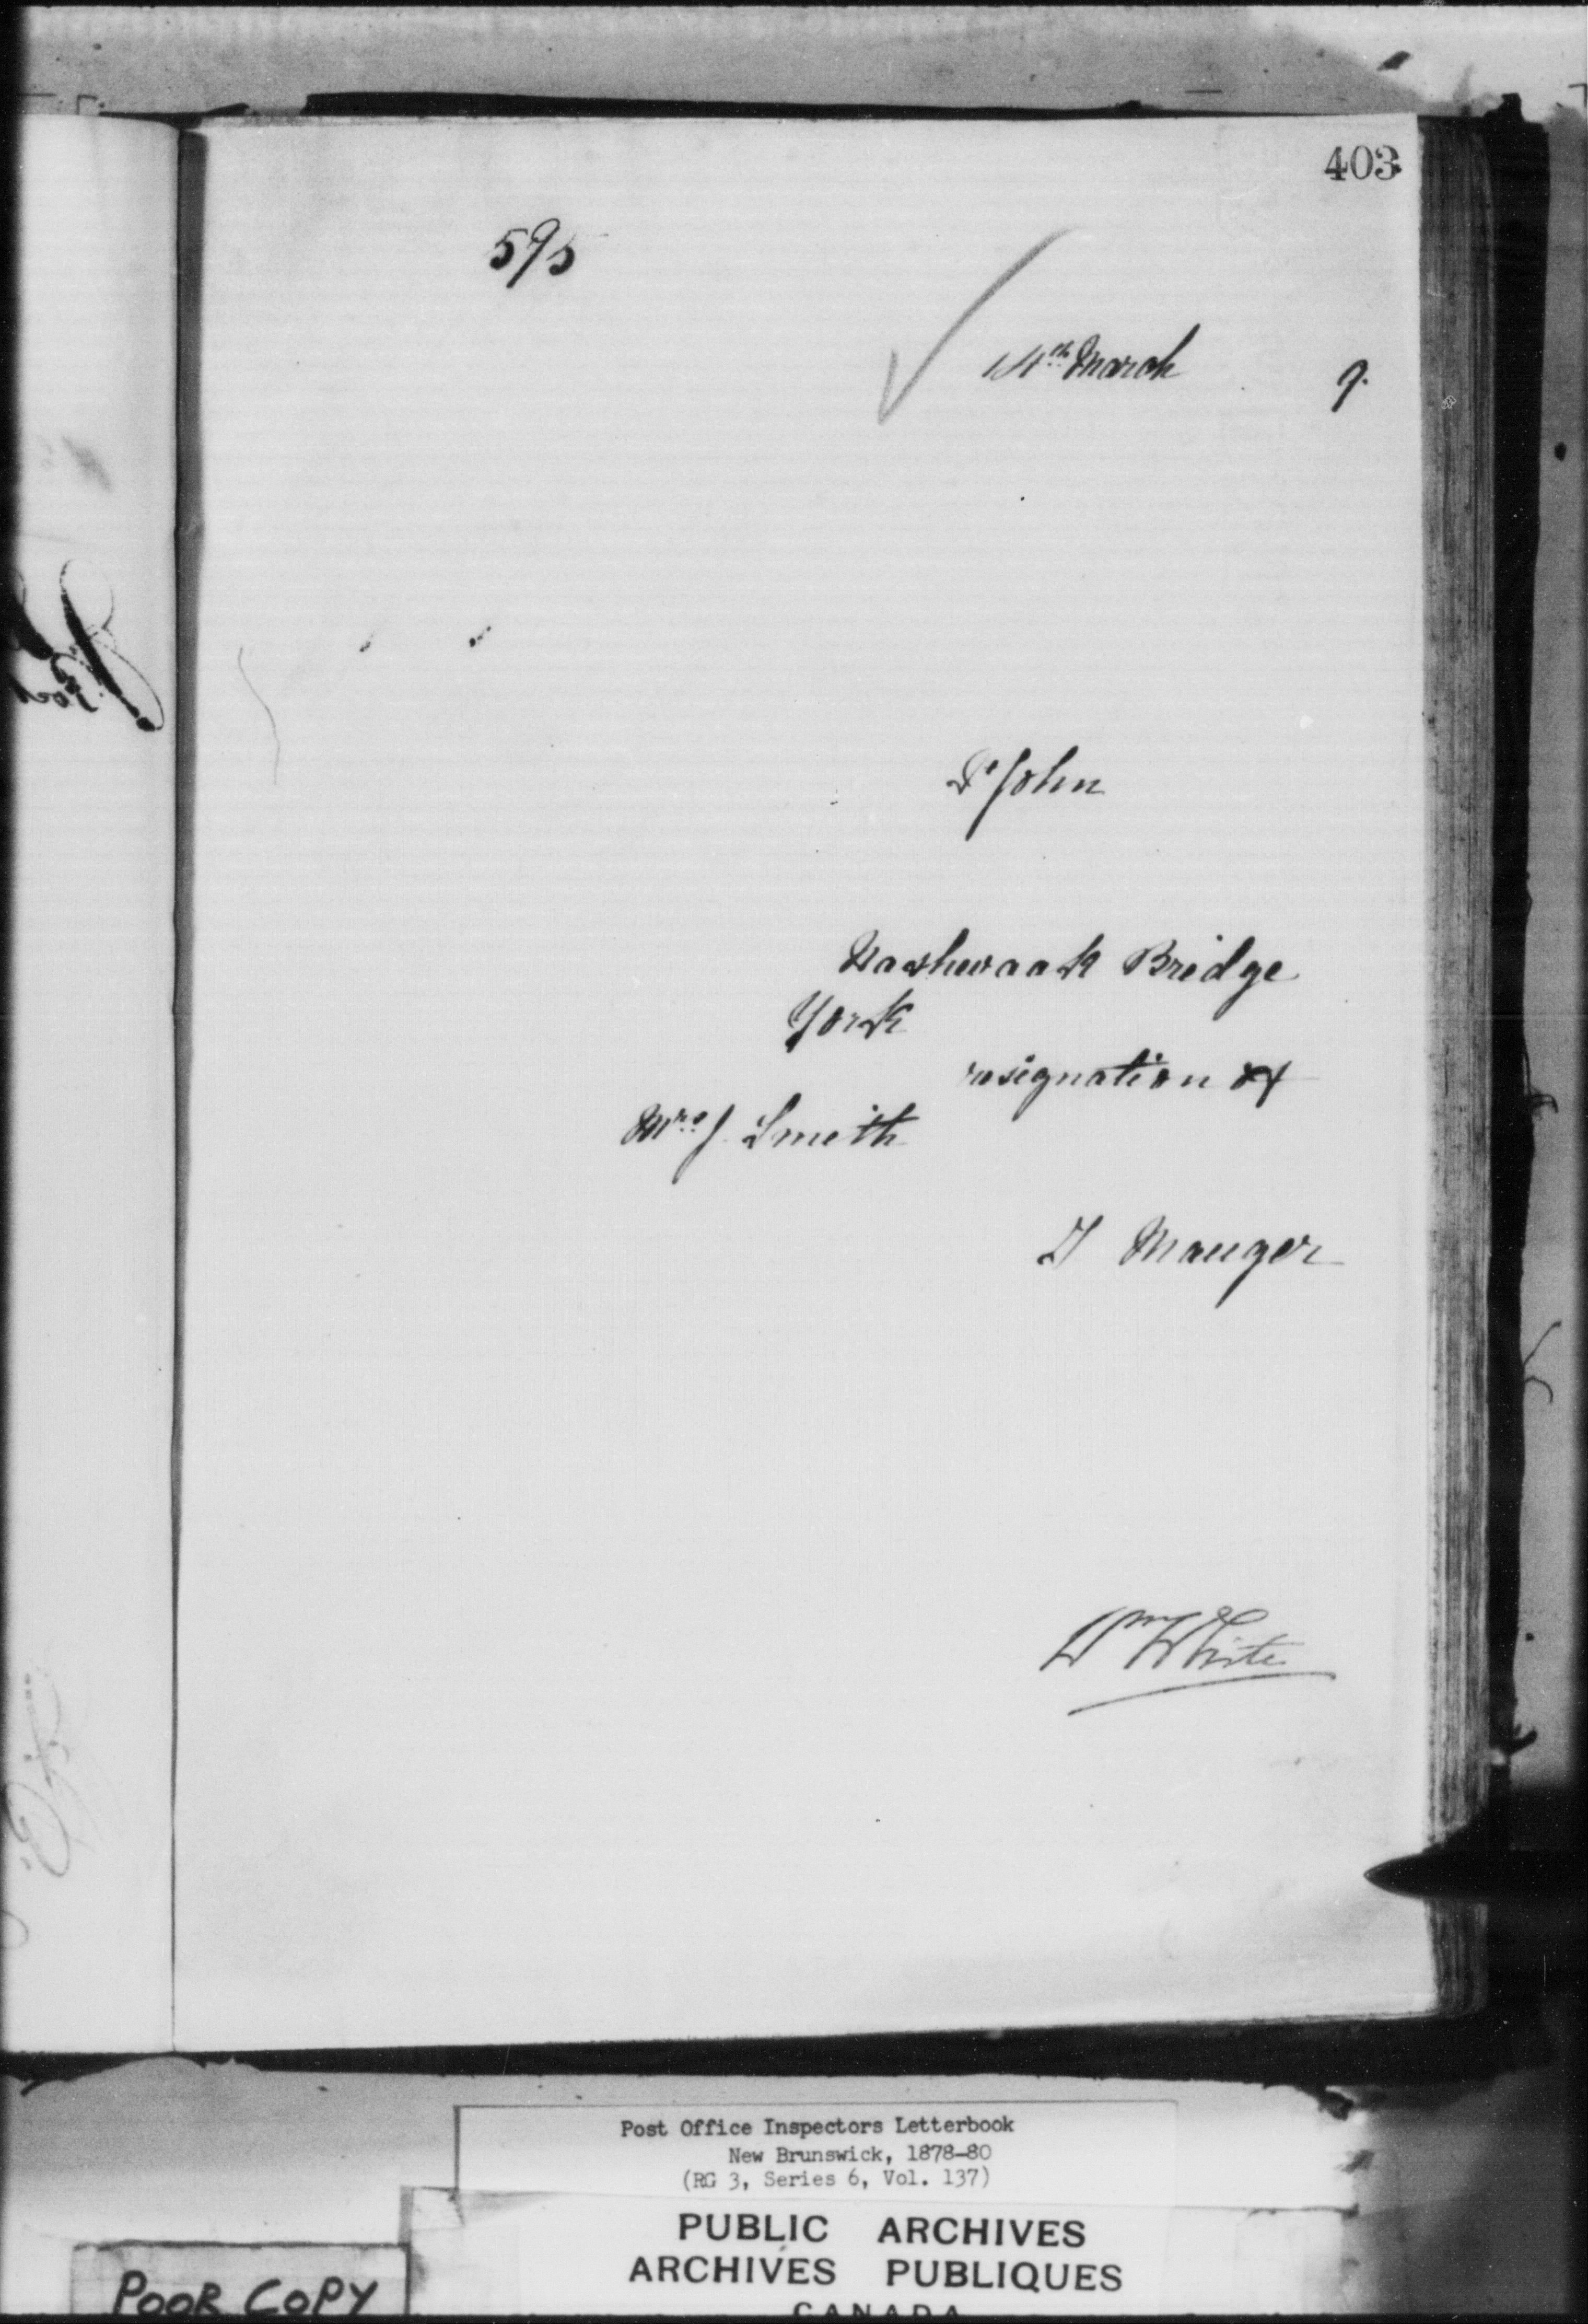 403
595
14th March 9.
St John
Nashwaak Bridge
York
resignation of
Mrs J. Smith
T Mauger
Wm White
Post Office Inspectors Letterbook
New Brunswick, 1878-80
(RG 3, Series 6, Vol. 137)
PUBLIC ARCHIVES
ARCHIVES PUBLIQUES
CANADA
POOR COPY